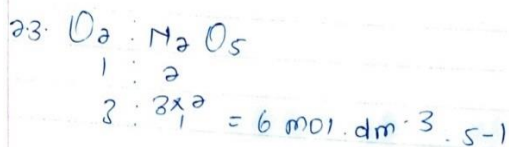 2.3. O2 : N2O5
1 : 2
3 : 3x2/1 = 6 mol.dm-3.s-1